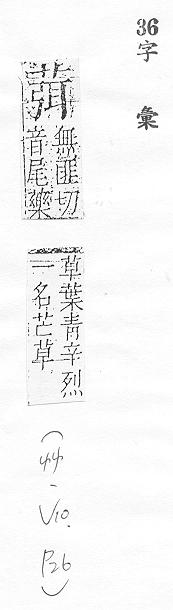 36字彙
葞
無匪切
音尾藥
草葉青辛烈
一名芒草
(艸-V10.P26)